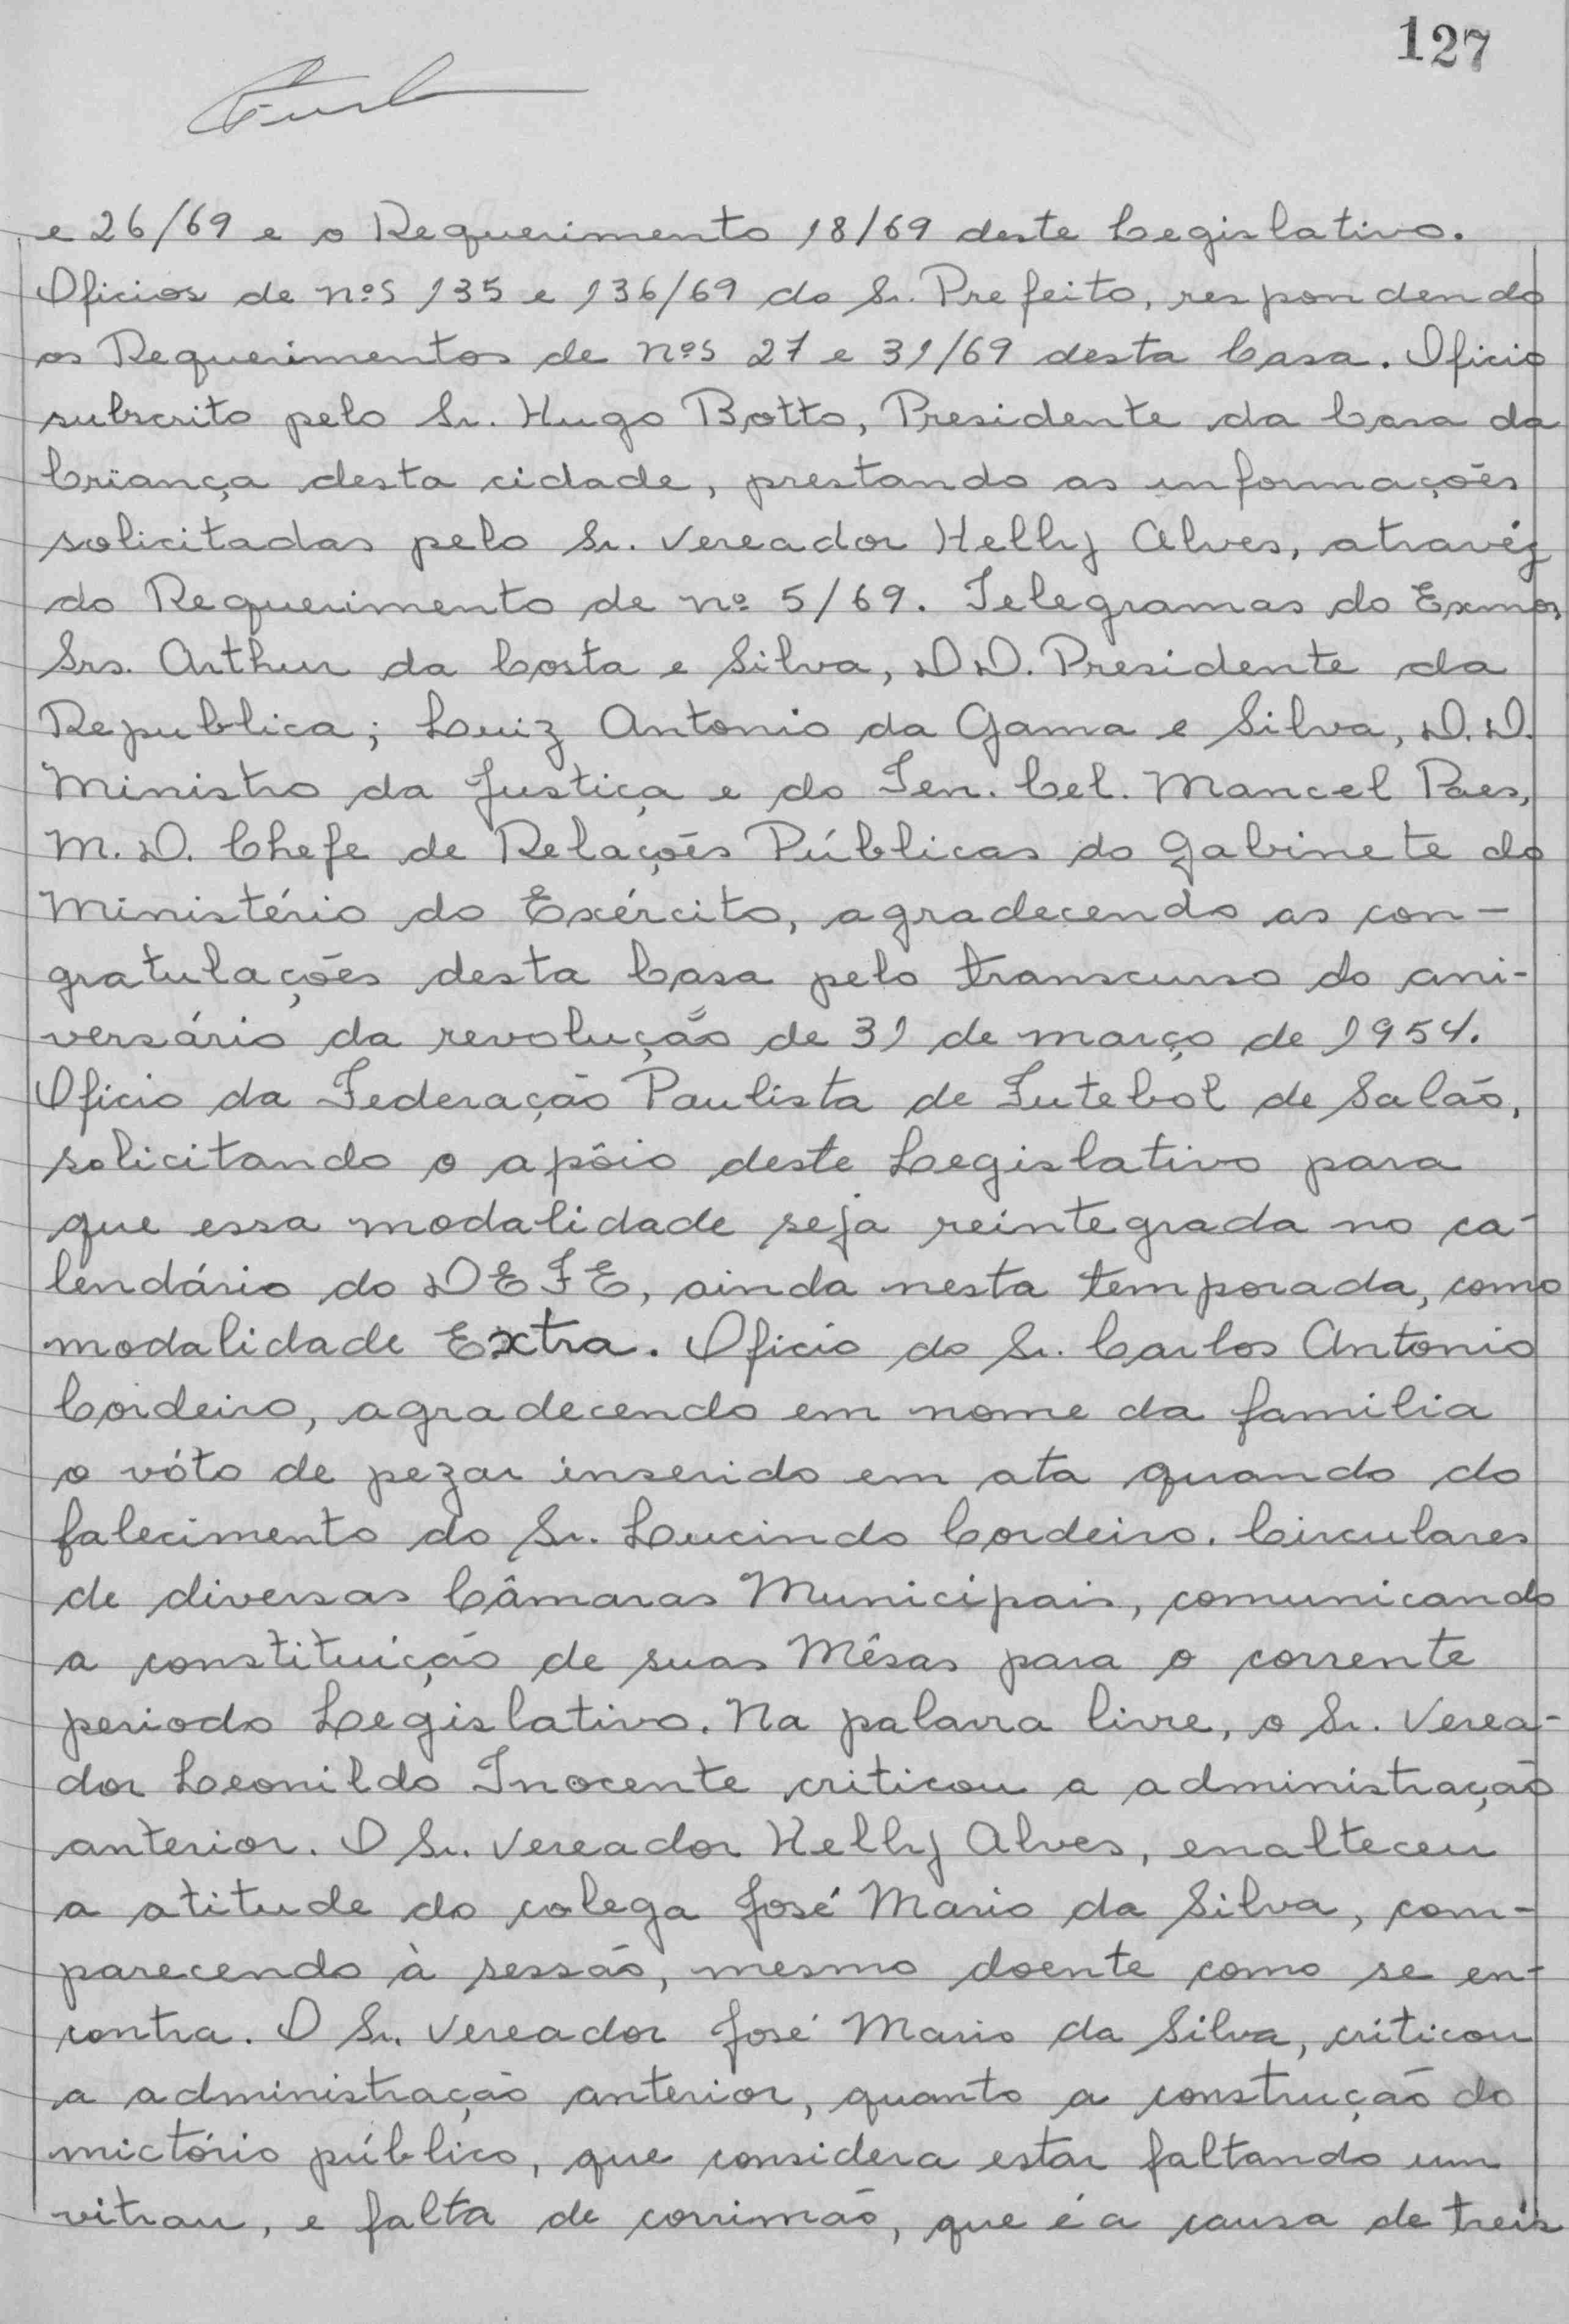 127
e 26/69 e o Requerimento 18/69 deste Legislativo.
Oficios de nºs 135 e 136/69 do Sr. Prefeito, respondendo
os Requerimentos de nºs 27 e 31/69 desta Casa. Oficio
subscrito pelo Sr. Hugo Botto, Presidente da Casa da
Criança desta cidade, prestando as informações
solicitadas pelo Sr. Vereador Helly Alves, atravéz
do Requerimento de nº 5/69. Telegramas do Exmos
Srs. Arthur da Costa e Silva, DD. Presidente da
Republica; Luiz Antonio da Gama e Silva, D.D.
Ministro da Justiça e do Ten. Cel. Manoel Paes,
M.D. Chefe de Relações Públicas do Gabinete do
Ministério do Exército, agradecendo as con-
gratulações desta Casa pelo transcurso do ani-
versário da revolução de 31 de março de 1954.
Oficio da Federação Paulista de Futebol de Salão,
solicitando o apôio deste Legislativo para
que essa modalidade seja reintegrada no ca-
lendário do DEFE, ainda nesta temporada, como
modalidade Extra. Oficio do Sr. Carlos Antonio
Cordeiro, agradecendo em nome da familia
o vóto de pezar inserido em ata quando do
falecimento do Sr. Lucindo Cordeiro. Circulares
de diversas Câmaras Municipais, comunicando
a constituição de suas Mêsas para o corrente
periodo Legislativo. Na palavra livre, o Sr. Verea-
dor Leonildo Inocente criticou a administração
anterior. O Sr. Vereador Helly Alves, enalteceu
a atitude do colega José Mario da Silva, com-
parecendo à sessão, mesmo doente como se en-
contra. O Sr. Vereador José Mario da Silva, criticou
a administração anterior, quanto a construção do
mictório público, que considera estar faltando um
vitrau, e falta de corrimão, que é a causa de treis